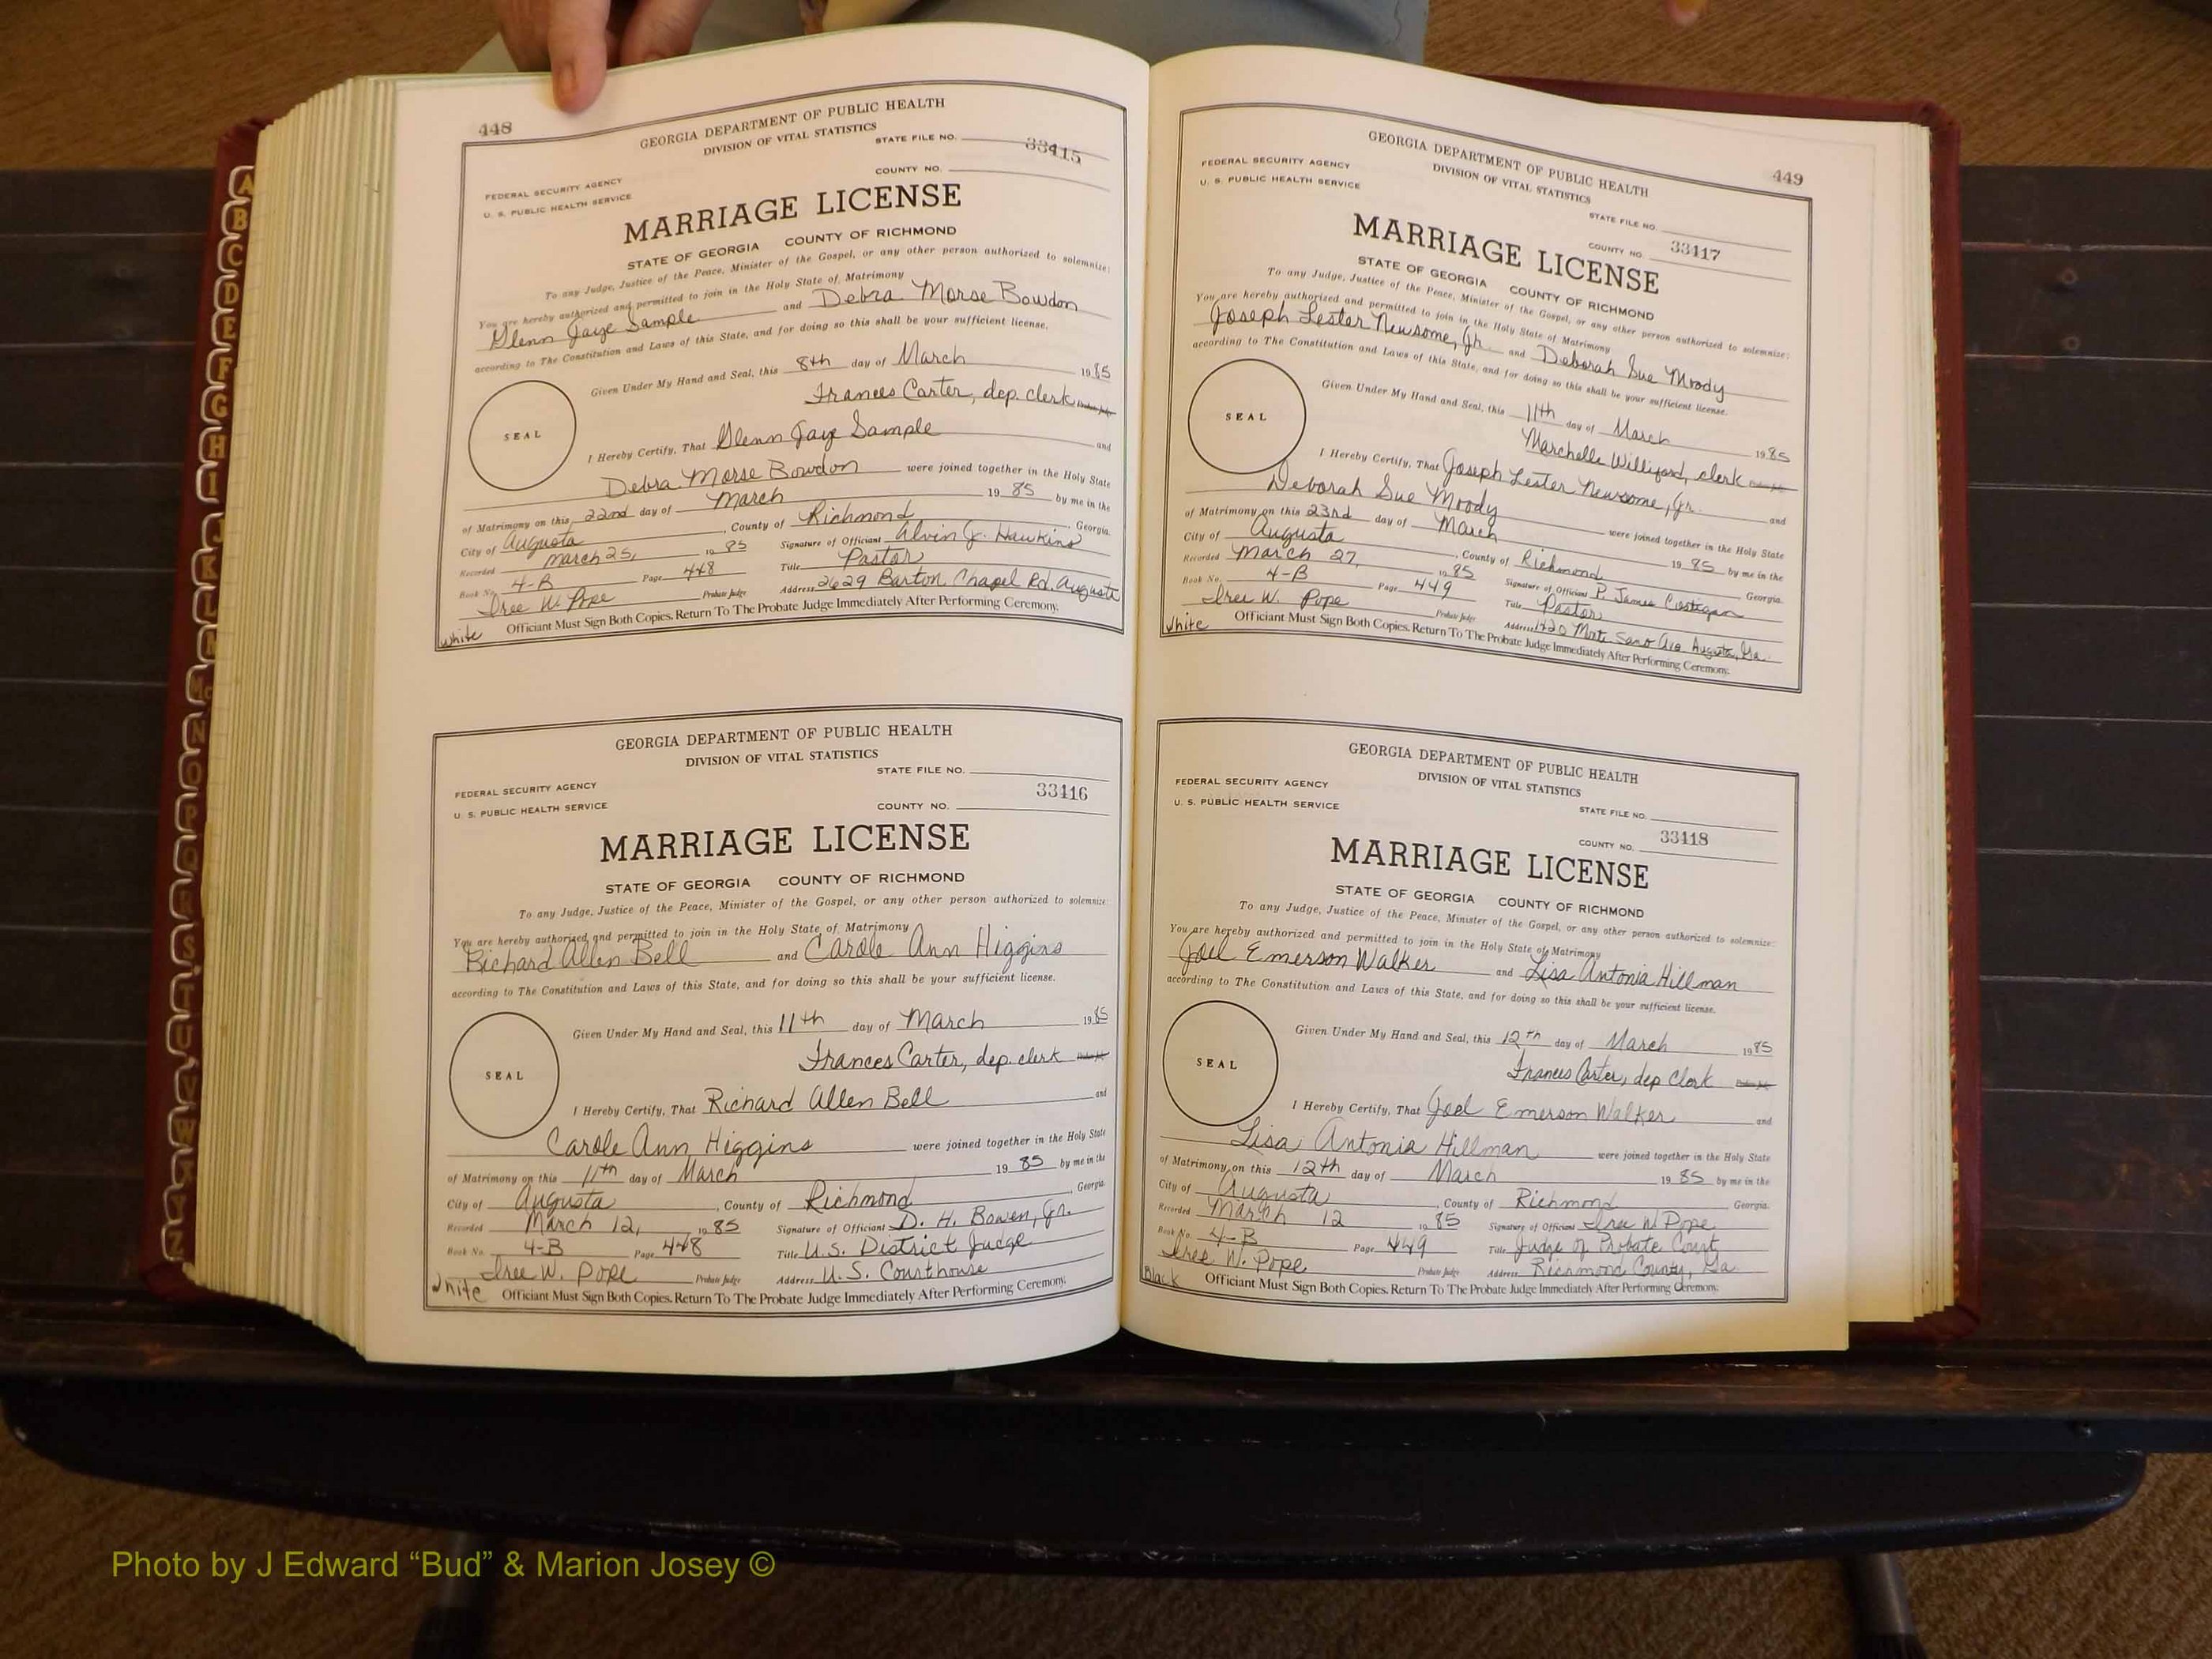 448
GEORGIA DEPARTMENT OF PUBLIC HEALTH
DIVISION OF VITAL STATISTICS
STATE FILE NO. 33415
FEDERAL SECURITY AGENCY
COUNTY NO.
U. S. PUBLIC HEALTH SERVICE
MARRIAGE LICENSE
STATE OF GEORGIA COUNTY OF RICHMOND
To any Judge, Justice of the Peace, Minister of the Gospel, or any other person authorized to solemnize:
You are hereby authorized and permitted to join in the Holy State of Matrimony
Glenn Jaye Sample and Debra Morse Bowdon
according to The Constitution and Laws of this State, and for doing so this shall be your sufficient license.
Given Under My Hand and Seal, this 8th day of March 1985
Frances Carter, dep. clerk Probate Judge
SEAL
I Hereby Certify, That Glenn Jaye Sample and
Debra Morse Bowdon were joined together in the Holy State
of Matrimony on this 22nd day of March 1985 by me in the
City of Augusta, County of Richmond, Georgia.
Recorded March 25, 1985 Signature of Officiant Alvin J. Hawkins
Book No. 4-B Page 448 Title Pastor
Iree W. Pope Probate Judge Address 2629 Barton Chapel Rd. Augusta
White Officiant Must Sign Both Copies. Return To The Probate Judge Immediately After Performing Ceremony.
GEORGIA DEPARTMENT OF PUBLIC HEALTH
DIVISION OF VITAL STATISTICS
STATE FILE NO.
FEDERAL SECURITY AGENCY
33416
U. S. PUBLIC HEALTH SERVICE COUNTY NO.
MARRIAGE LICENSE
STATE OF GEORGIA COUNTY OF RICHMOND
To any Judge, Justice of the Peace, Minister of the Gospel, or any other person authorized to solemnize:
You are hereby authorized and permitted to join in the Holy State of Matrimony
Richard Allen Bell and Carole Ann Higgins
according to The Constitution and Laws of this State, and for doing so this shall be your sufficient license.
Given Under My Hand and Seal, this 11th day of March 1985
Frances Carter, dep. clerk Probate Judge
SEAL
I Hereby Certify, That Richard Allen Bell and
Carole Ann Higgins were joined together in the Holy State
of Matrimony on this 11th day of March 1985 by me in the
City of Augusta, County of Richmond, Georgia.
Recorded March 12, 1985 Signature of Officiant D. H. Bowen, Jr.
Book No. 4-B Page 448 Title U.S. District Judge
Iree W. Pope Probate Judge Address U.S. Courthouse
White Officiant Must Sign Both Copies. Return To The Probate Judge Immediately After Performing Ceremony.
449
GEORGIA DEPARTMENT OF PUBLIC HEALTH
DIVISION OF VITAL STATISTICS
FEDERAL SECURITY AGENCY
U. S. PUBLIC HEALTH SERVICE
STATE FILE NO.
COUNTY NO. 33417
MARRIAGE LICENSE
STATE OF GEORGIA COUNTY OF RICHMOND
To any Judge, Justice of the Peace, Minister of the Gospel, or any other person authorized to solemnize:
You are hereby authorized and permitted to join in the Holy State of Matrimony
Joseph Lester Newsome, Jr. and Deborah Sue Moody
according to The Constitution and Laws of this State, and for doing so this shall be your sufficient license.
Given Under My Hand and Seal, this 11th day of March 1985
Marchelle Williford, clerk Probate Judge
SEAL
I Hereby Certify, That Joseph Lester Newsome, Jr. and
Deborah Sue Moody were joined together in the Holy State
of Matrimony on this 23rd day of March 1985 by me in the
City of Augusta, County of Richmond Georgia.
Recorded March 27, 1985 Signature of Officiant P. James Costigan
Book No. 4-B Page 449 Title Pastor
Iree W. Pope Probate Judge Address 1420 Monte Sano Ave Augusta, Ga.
White Officiant Must Sign Both Copies. Return To The Probate Judge Immediately After Performing Ceremony.
GEORGIA DEPARTMENT OF PUBLIC HEALTH
DIVISION OF VITAL STATISTICS
FEDERAL SECURITY AGENCY
U. S. PUBLIC HEALTH SERVICE
STATE FILE NO.
COUNTY NO. 33418
MARRIAGE LICENSE
STATE OF GEORGIA COUNTY OF RICHMOND
To any Judge, Justice of the Peace, Minister of the Gospel, or any other person authorized to solemnize:
You are hereby authorized and permitted to join in the Holy State of Matrimony
Joel Emerson Walker and Lisa Antonia Hillman
according to The Constitution and Laws of this State, and for doing so this shall be your sufficient license.
Given Under My Hand and Seal, this 12th day of March 1985
Frances Carter, dep Clerk Probate Judge
SEAL
I Hereby Certify, That Joel Emerson Walker and
Lisa Antonia Hillman were joined together in the Holy State
of Matrimony on this 12th day of March 1985 by me in the
City of Augusta, County of Richmond Georgia.
Recorded March 12 1985 Signature of Officiant Iree W Pope
Book No. 4-B Page 449 Title Judge of Probate Court
Iree W. Pope Probate Judge Address Richmond County, Ga.
Black Officiant Must Sign Both Copies. Return To The Probate Judge Immediately After Performing Ceremony.
A
B
C
D
E
F
G
H
I
J
K
L
M
Mc
N
O
P
Q
R
S
T
U
V
W
Y
Z
Photo by J Edward “Bud” & Marion Josey ©